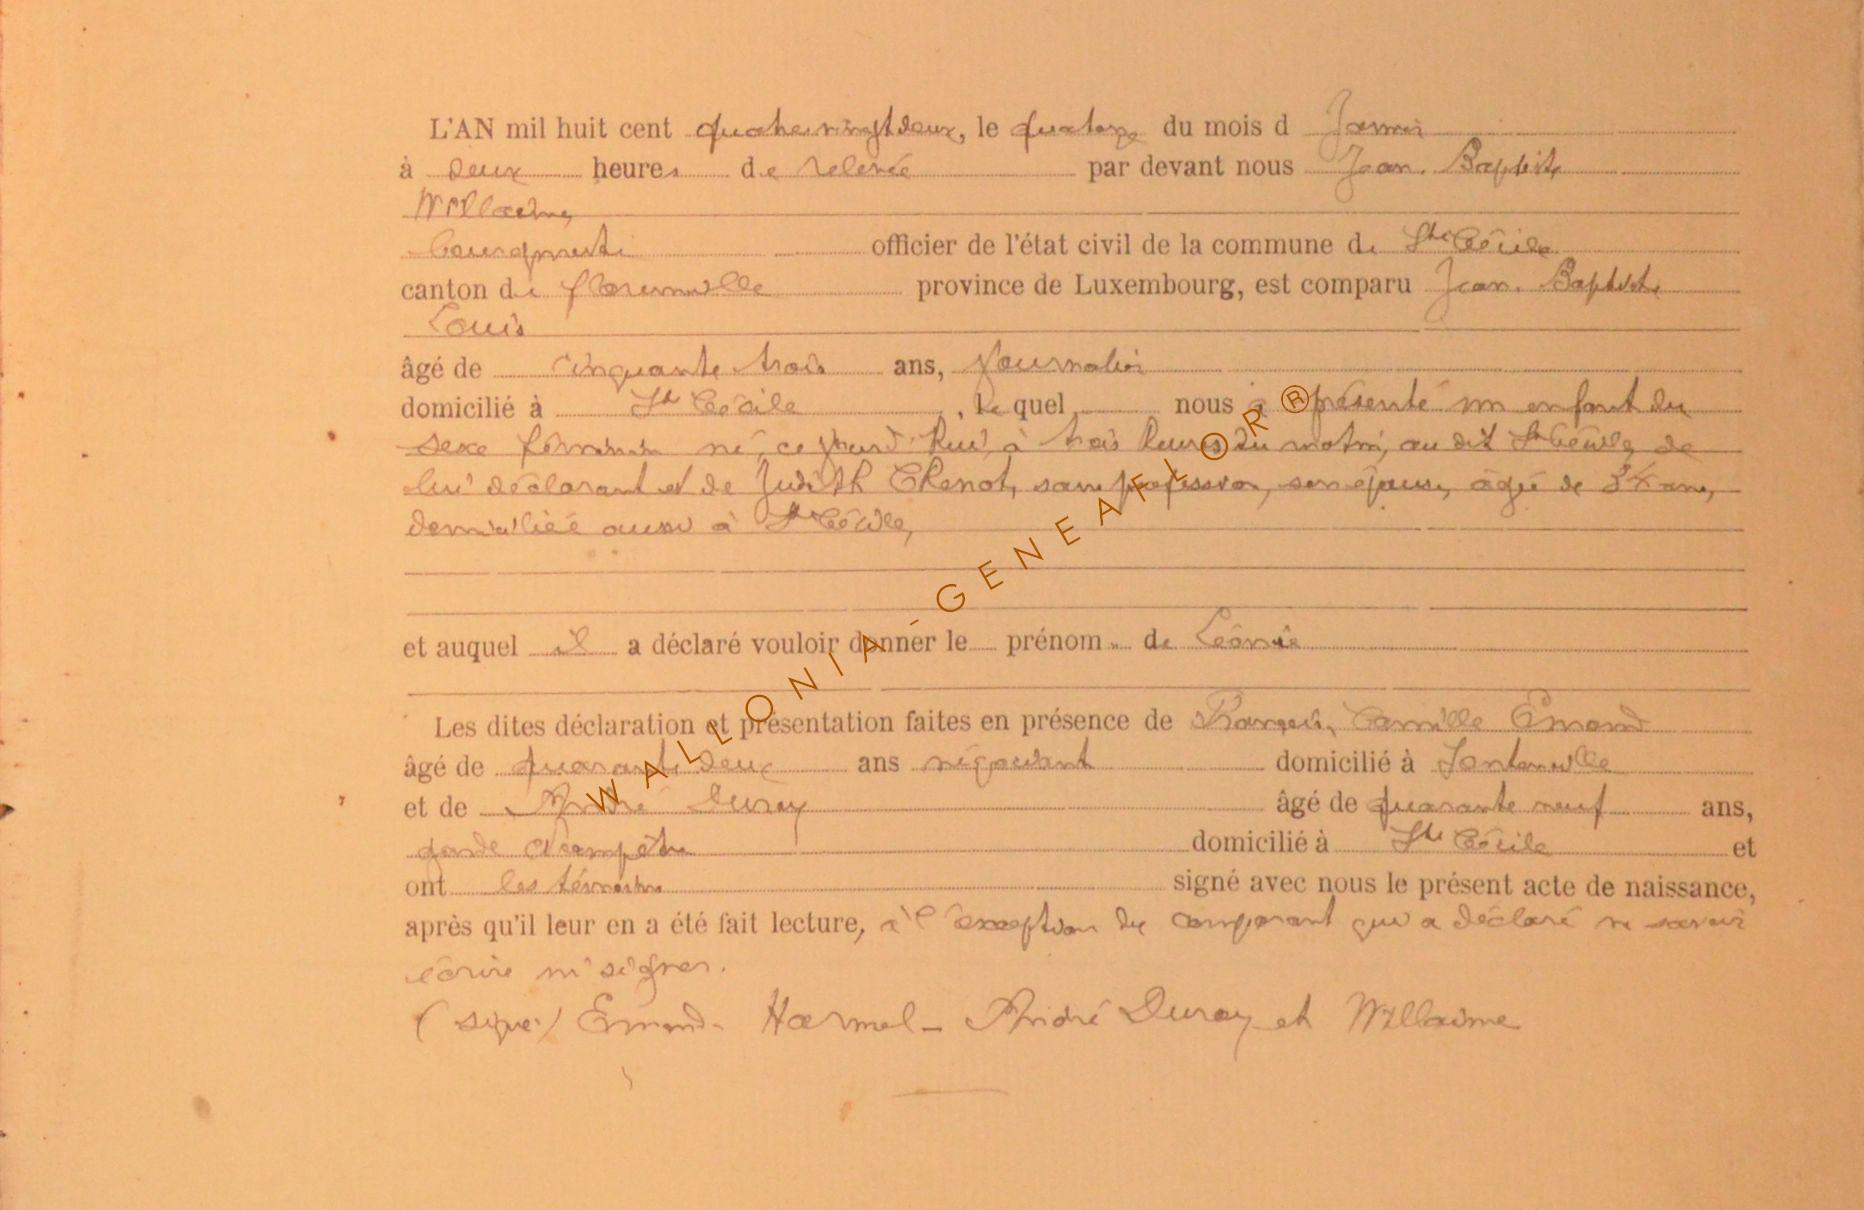 L'AN mil huit cent quatrevingtdeux, le quatorze du mois d Janvier
à deux heures de relevée par devant nous Jean. Baptiste
Willaime,
Bourgmestre officier de l'état civil de la commune de Ste Cécile
canton de florenville province de Luxembourg, est comparu Jean. Baptiste
Louis
âgé de cinquante trois ans, journalier
domicilié à Ste Cécile, le quel nous a présenté un enfant du
sexe féminin né, ce jourd'hui, à trois heures du matin, au dit Ste Cécile, de
lui déclarant et de Judith Chenot, sans profession, son épouse, âgée de ans,
domiciliée aussi à Ste Cécile,
et auquel il a déclaré vouloir donner le prénom de Léonie
Les dites déclaration et présentation faites en présence de François, Camille Emond
âgé de quarante deux ans négociant domicilié à
et de André Duroy âgé de quarante neuf ans,
garde champêtre domicilié à Ste Cécile et
ont les témoins signé avec nous le présent acte de naissance,
après qu'il leur en a été fait lecture, à l'exception du comparant qui a déclaré ne savoir
écrire ni signer.
(signé) Emond - Harmel - André Duroy et Willaime
WALLONIA-GENEAFLOR®